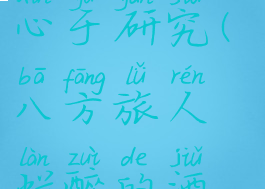 心于研究(
bā fāng lǚ rén
八方旅人
làn zuì de jiǔ
醉的酒